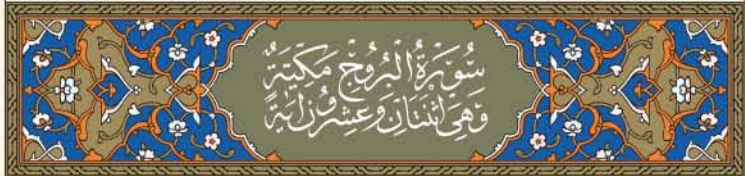 سُورَةُ الْبُرُوجِ مَكِّيَّةٌ
وَهِيَ اثْنَتَانِ وَعِشْرُونَ آيَةً